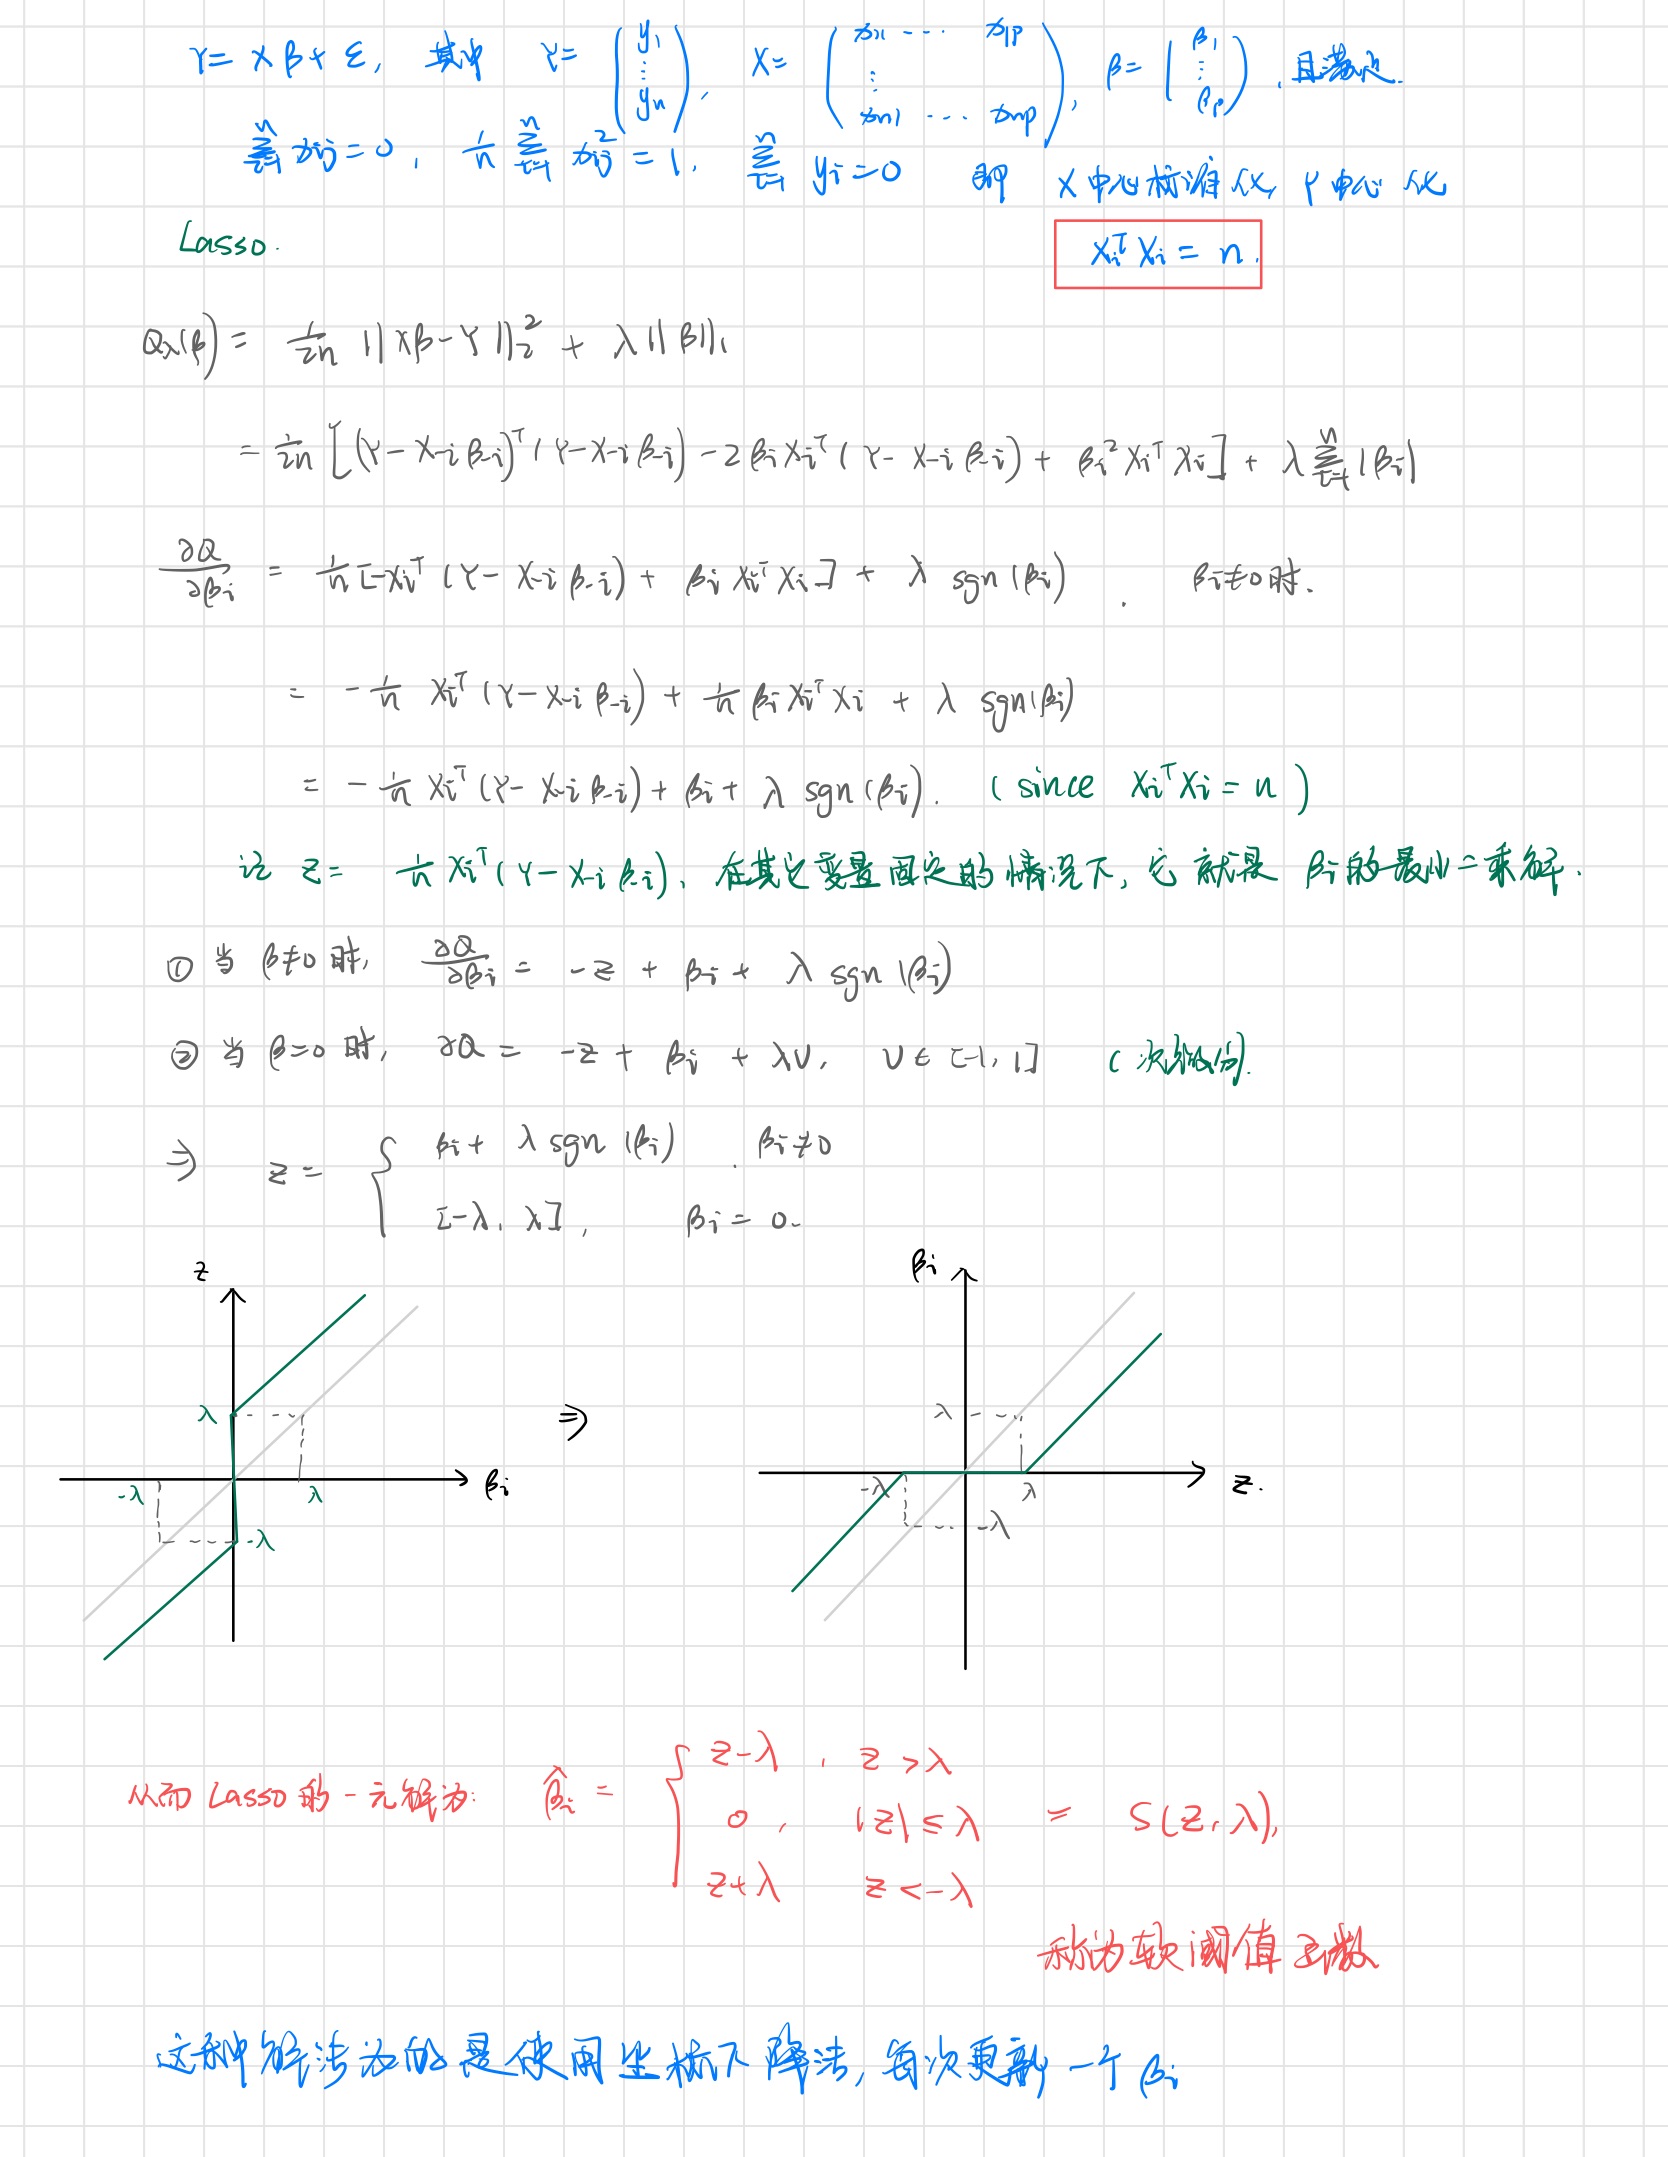 Y = Xβ + ε, 其中 Y = (y₁ ⋮ yₙ), X = (x₁₁ ⋯ x₁ₚ ⋮ xₙ₁ ⋯ xₙₚ), β = (β₁ ⋮ βₚ), 且满足.
∑ᵢ₌₁ⁿ xᵢⱼ = 0, 1/n ∑ᵢ₌₁ⁿ xᵢⱼ² = 1, ∑ᵢ₌₁ⁿ yᵢ = 0 即 X中心标准化, Y中心化
Lasso.
Xᵢᵀ Xᵢ = n.
Q_λ(β) = 1/2n ||Xβ - Y||₂² + λ||β||₁
= 1/2n [(Y - X₋ᵢβ₋ᵢ)ᵀ(Y - X₋ᵢβ₋ᵢ) - 2βᵢXᵢᵀ(Y - X₋ᵢβ₋ᵢ) + βᵢ²XᵢᵀXᵢ] + λ ∑ᵢ₌₁ⁿ |βᵢ|
∂Q/∂βᵢ = 1/n [-Xᵢᵀ(Y - X₋ᵢβ₋ᵢ) + βᵢXᵢᵀXᵢ] + λ sgn(βᵢ). βᵢ≠0时.
= -1/n Xᵢᵀ(Y - X₋ᵢβ₋ᵢ) + 1/n βᵢXᵢᵀXᵢ + λ sgn(βᵢ)
= -1/n Xᵢᵀ(Y - X₋ᵢβ₋ᵢ) + βᵢ + λ sgn(βᵢ). (since XᵢᵀXᵢ = n)
记 z = 1/n Xᵢᵀ(Y - X₋ᵢβ₋ᵢ), 在其它变量固定的情况下, 它就是 βᵢ的最小二乘解.
① 当 β≠0 时, ∂Q/∂βᵢ = -z + βᵢ + λ sgn(βᵢ)
② 当 β=0 时, ∂Q = -z + βᵢ + λv, v∈[-1, 1] (次微分).
⇒ z = { βᵢ + λ sgn(βᵢ), βᵢ≠0
[-λ, λ], βᵢ = 0.
z
βᵢ
λ
λ
⇒
-λ
λ
βᵢ
-λ
λ
z.
-λ
-λ
从而 Lasso 的一元解为: β̂ᵢ = { z-λ, z > λ
0, |z| ≤ λ = S(z, λ),
z+λ z < -λ
称为软阈值函数
这种解法为的是使用坐标下降法, 每次更新一个 βᵢ